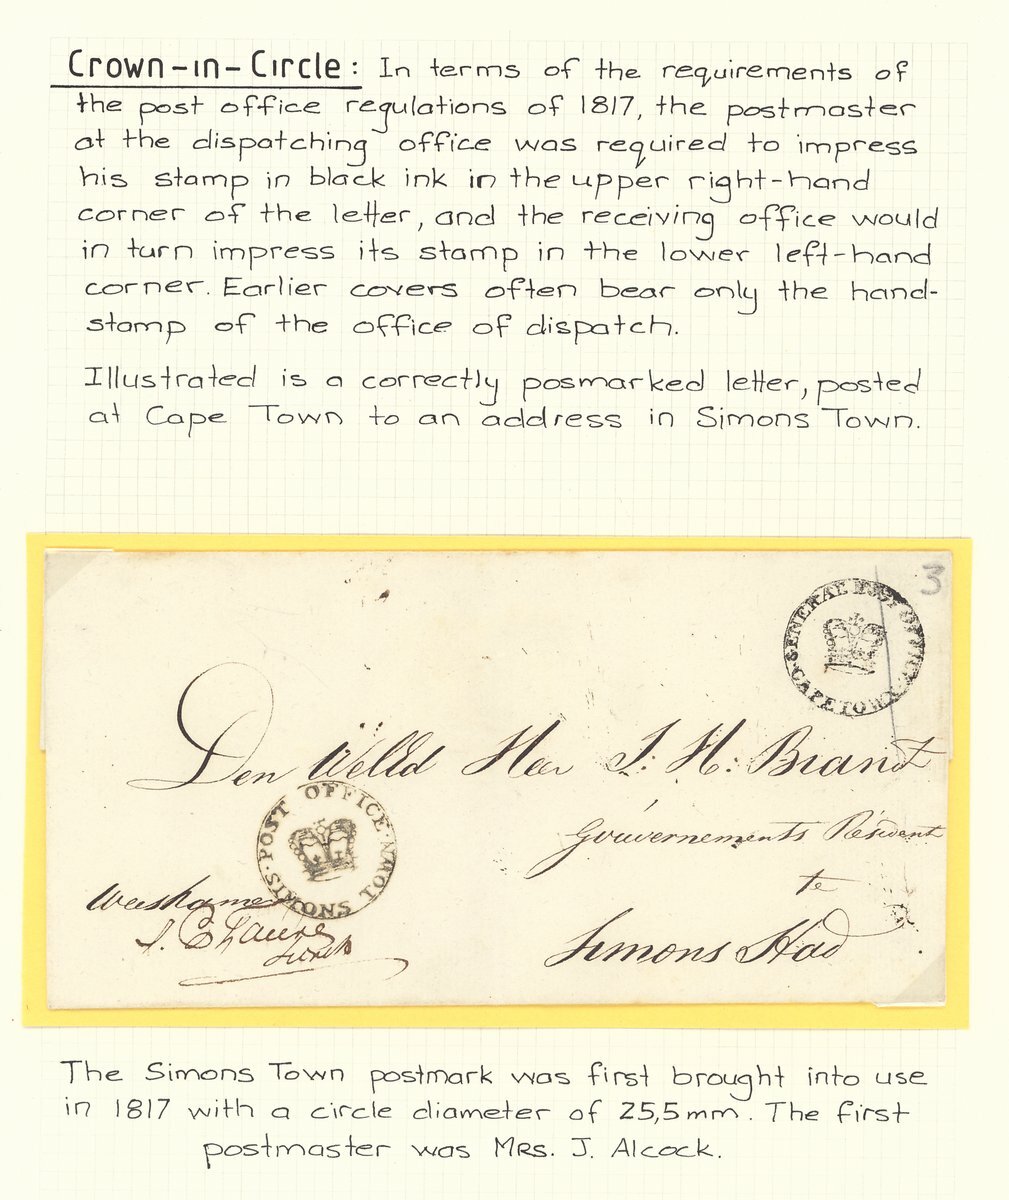 Crown-in-Circle: In terms of the requirements of
the post office regulations of 1817, the postmaster
at the dispatching office was required to impress
his stamp in black ink in the upper right-hand
corner of the letter, and the receiving office would
in turn impress its stamp in the lower left-hand
corner. Earlier covers often bear only the hand-
stamp of the office of dispatch.
Illustrated is a correctly posmarked letter, posted
at Cape Town to an address in Simons Town.
3
GENERAL POST OFFICE
CAPE TOWN
Den WelEd Heer J. H. Brandt
Gouvernements Resident
te
Simons Stad
POST OFFICE
SIMONS TOWN
Weeskamer
The Simons Town postmark was first brought into use
in 1817 with a circle diameter of 25,5mm. The first
postmaster was MRS. J. Alcock.